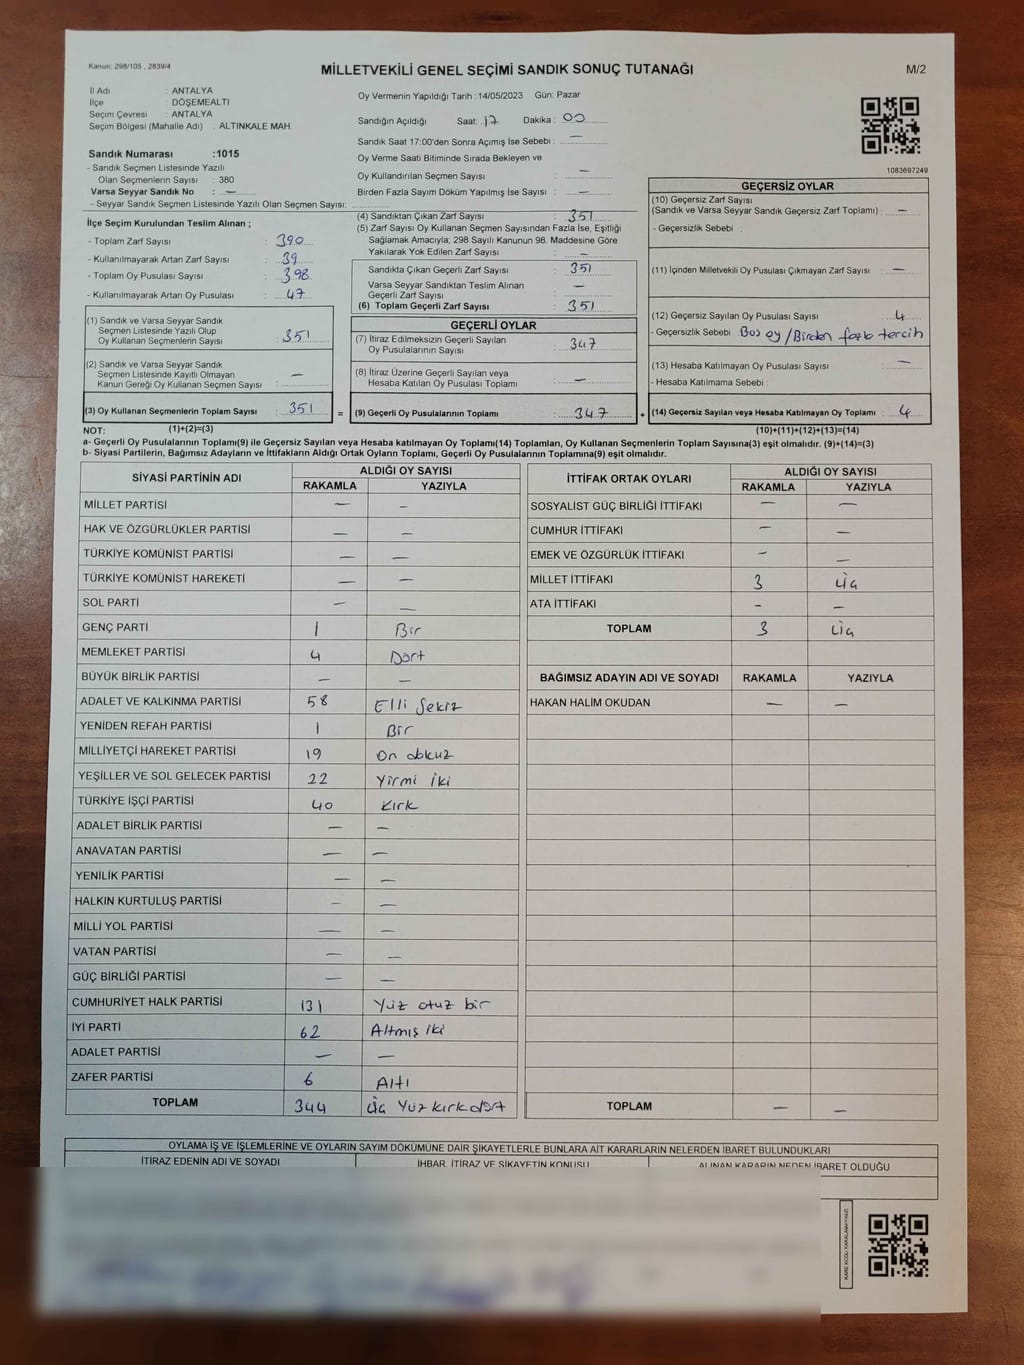 Kanun: 298/105 , 2839/4
MİLLETVEKİLİ GENEL SEÇİMİ SANDIK SONUÇ TUTANAĞI
M/2
İl Adı : ANTALYA
İlçe : DÖŞEMEALTI
Seçim Çevresi : ANTALYA
Seçim Bölgesi (Mahalle Adı) : ALTINKALE MAH.
Sandık Numarası :1015
- Sandık Seçmen Listesinde Yazılı
Olan Seçmenlerin Sayısı : 380
Varsa Seyyar Sandık No : —
- Seyyar Sandık Seçmen Listesinde Yazılı Olan Seçmen Sayısı:
Oy Vermenin Yapıldığı Tarih :14/05/2023 Gün: Pazar
Sandığın Açıldığı Saat: 17 Dakika : 00
Sandık Saat 17:00'den Sonra Açımış İse Sebebi : —
Oy Verme Saati Bitiminde Sırada Bekleyen ve
Oy Kullandırılan Seçmen Sayısı : —
Birden Fazla Sayım Döküm Yapılmış İse Sayısı : —
1083697249
İlçe Seçim Kurulundan Teslim Alınan ;
- Toplam Zarf Sayısı : 390
- Kullanılmayarak Artan Zarf Sayısı : 39
- Toplam Oy Pusulası Sayısı : 398
- Kullanılmayarak Artan Oy Pusulası : 47
(1) Sandık ve Varsa Seyyar Sandık
Seçmen Listesinde Yazılı Olup
Oy Kullanan Seçmenlerin Sayısı : 351
(2) Sandık ve Varsa Seyyar Sandık
Seçmen Listesinde Kayıtlı Olmayan —
Kanun Gereği Oy Kullanan Seçmen Sayısı :
(3) Oy Kullanan Seçmenlerin Toplam Sayısı : 351 =
(4) Sandıktan Çıkan Zarf Sayısı : 351
(5) Zarf Sayısı Oy Kullanan Seçmen Sayısından Fazla İse, Eşitliği
Sağlamak Amacıyla; 298 Sayılı Kanunun 98. Maddesine Göre
Yakılarak Yok Edilen Zarf Sayısı : —
Sandıkta Çıkan Geçerli Zarf Sayısı : 351
Varsa Seyyar Sandıktan Teslim Alınan
Geçerli Zarf Sayısı : —
(6) Toplam Geçerli Zarf Sayısı : 351
GEÇERLİ OYLAR
(7) İtiraz Edilmeksizin Geçerli Sayılan
Oy Pusulalarının Sayısı : 347
(8) İtiraz Üzerine Geçerli Sayılan veya
Hesaba Katılan Oy Pusulası Toplamı : —
(9) Geçerli Oy Pusulalarının Toplamı : 347 +
GEÇERSİZ OYLAR
(10) Geçersiz Zarf Sayısı
(Sandık ve Varsa Seyyar Sandık Geçersiz Zarf Toplamı) : —
- Geçersizlik Sebebi :
(11) İçinden Milletvekili Oy Pusulası Çıkmayan Zarf Sayısı : —
(12) Geçersiz Sayılan Oy Pusulası Sayısı : 4
- Geçersizlik Sebebi : Boş oy / Birden fazla tercih
(13) Hesaba Katılmayan Oy Pusulası Sayısı : —
- Hesaba Katılmama Sebebi :
(14) Geçersiz Sayılan veya Hesaba Katılmayan Oy Toplamı : 4
NOT: (1)+(2)=(3) (10)+(11)+(12)+(13)=(14)
a- Geçerli Oy Pusulalarının Toplamı(9) ile Geçersiz Sayılan veya Hesaba katılmayan Oy Toplamı(14) Toplamları, Oy Kullanan Seçmenlerin Toplam Sayısına(3) eşit olmalıdır. (9)+(14)=(3)
b- Siyasi Partilerin, Bağımsız Adayların ve İttifakların Aldığı Ortak Oyların Toplamı, Geçerli Oy Pusulalarının Toplamına(9) eşit olmalıdır.
SİYASİ PARTİNİN ADI ALDIĞI OY SAYISI
RAKAMLA YAZIYLA
MİLLET PARTİSİ — —
HAK VE ÖZGÜRLÜKLER PARTİSİ — —
TÜRKİYE KOMÜNİST PARTİSİ — —
TÜRKİYE KOMÜNİST HAREKETİ — —
SOL PARTİ — —
GENÇ PARTİ 1 Bir
MEMLEKET PARTİSİ 4 Dört
BÜYÜK BİRLİK PARTİSİ — —
ADALET VE KALKINMA PARTİSİ 58 Elli Sekiz
YENİDEN REFAH PARTİSİ 1 Bir
MİLLİYETÇİ HAREKET PARTİSİ 19 On dokuz
YEŞİLLER VE SOL GELECEK PARTİSİ 22 Yirmi iki
TÜRKİYE İŞÇİ PARTİSİ 40 Kırk
ADALET BİRLİK PARTİSİ — —
ANAVATAN PARTİSİ — —
YENİLİK PARTİSİ — —
HALKIN KURTULUŞ PARTİSİ — —
MİLLİ YOL PARTİSİ — —
VATAN PARTİSİ — —
GÜÇ BİRLİĞİ PARTİSİ — —
CUMHURİYET HALK PARTİSİ 131 Yüz otuz bir
İYİ PARTİ 62 Altmış iki
ADALET PARTİSİ — —
ZAFER PARTİSİ 6 Altı
TOPLAM 344 Üç Yüz kırk dört
İTTİFAK ORTAK OYLARI ALDIĞI OY SAYISI
RAKAMLA YAZIYLA
SOSYALİST GÜÇ BİRLİĞİ İTTİFAKI — —
CUMHUR İTTİFAKI — —
EMEK VE ÖZGÜRLÜK İTTİFAKI — —
MİLLET İTTİFAKI 3 Üç
ATA İTTİFAKI — —
TOPLAM 3 Üç
BAĞIMSIZ ADAYIN ADI VE SOYADI RAKAMLA YAZIYLA
HAKAN HALİM OKUDAN — —
TOPLAM — —
OYLAMA İŞ VE İŞLEMLERİNE VE OYLARIN SAYIM DÖKÜMÜNE DAİR ŞİKAYETLERLE BUNLARA AİT KARARLARIN NELERDEN İBARET BULUNDUKLARI
İTİRAZ EDENİN ADI VE SOYADI İHBAR, İTİRAZ VE ŞİKAYETİN KONUSU ALINAN KARARIN NEDEN İBARET OLDUĞU
KARE KODU KARALAMAYINIZ!